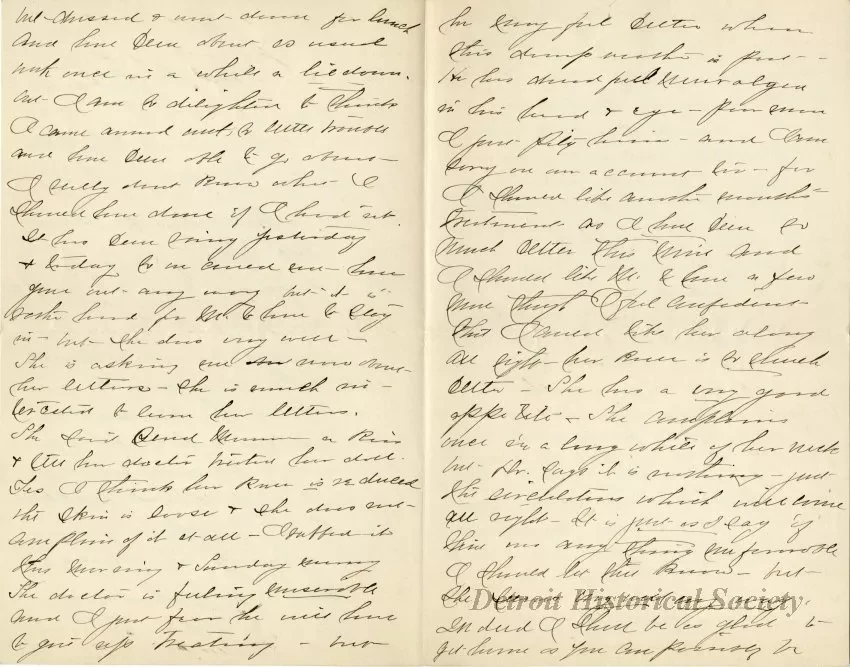 but dressed & went down for lunch
and have been about as usual
only once in a while a lie down.
but I am so delighted to think
I came around with so little trouble
and have been able to go about
I really don't know what I
should have done if I hadn't
It has been rainy yesterday
& today so we cannot have
gone out any way but it is
rather hard for to have to stay
in - but she does very well -
She is asking me now about
her letters - she is much in-
terested to learn her letters.
She said Send Mamma a kiss
& tell her doctor treated her doll.
Yes I think her knee is reduced
the skin is loose & she does not
complain of it at all - I rubbed it
this morning & Sunday evening
The doctor is feeling miserable
and I just fear he will have
to give up treating - but
he may feel better when
this damp weather is past -
He has dreadful neuralgia
in his head & eye - Poor man
I just pity him - and I am
sorry on our account too - for
I should like another month's
treatment as I have been so
much better this time and
I should like to have a few
more though I feel confident
that I could like her along
all right - her knee is so much
better - She has a very good
appetite - She complains
once in a long while of her neck
but Dr. says it is nothing - just
the circulation which will come
all right - It is just as I say if
there was any thing unfavorable
I should let thee know - but
she
Indeed I shall be as glad to
get home as you can possibly be
Detroit Historical Society